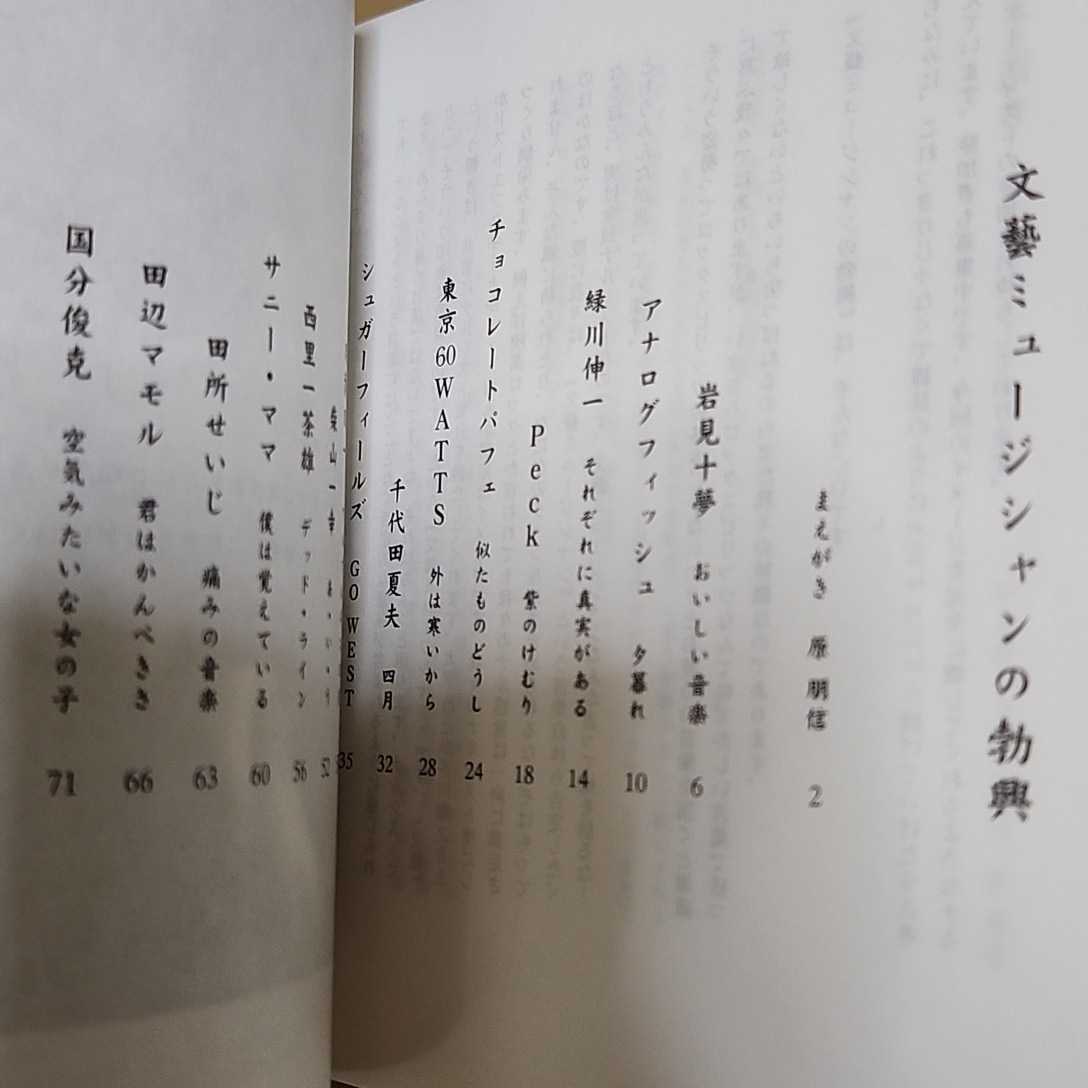 文藝ミュージシャンの勃興
まえがき 原 朋信 2
岩見十夢 おいしい音楽 6
アナログフィッシュ 夕暮れ 10
緑川伸一 それぞれに真実がある 14
Peck 紫のけむり 18
チョコレートパフェ 似たものどうし 24
東京60WATTS 外は寒いから 28
千代田夏夫 四月 32
シュガーフィールズ GO WEST 35
山一 52
西里一茶雄 デッド・ライン 56
サニー・ママ 僕は覚えている 60
田所せいじ 痛みの音楽 63
田辺マモル 君はかんぺきさ 66
国分俊克 空気みたいな女の子 71